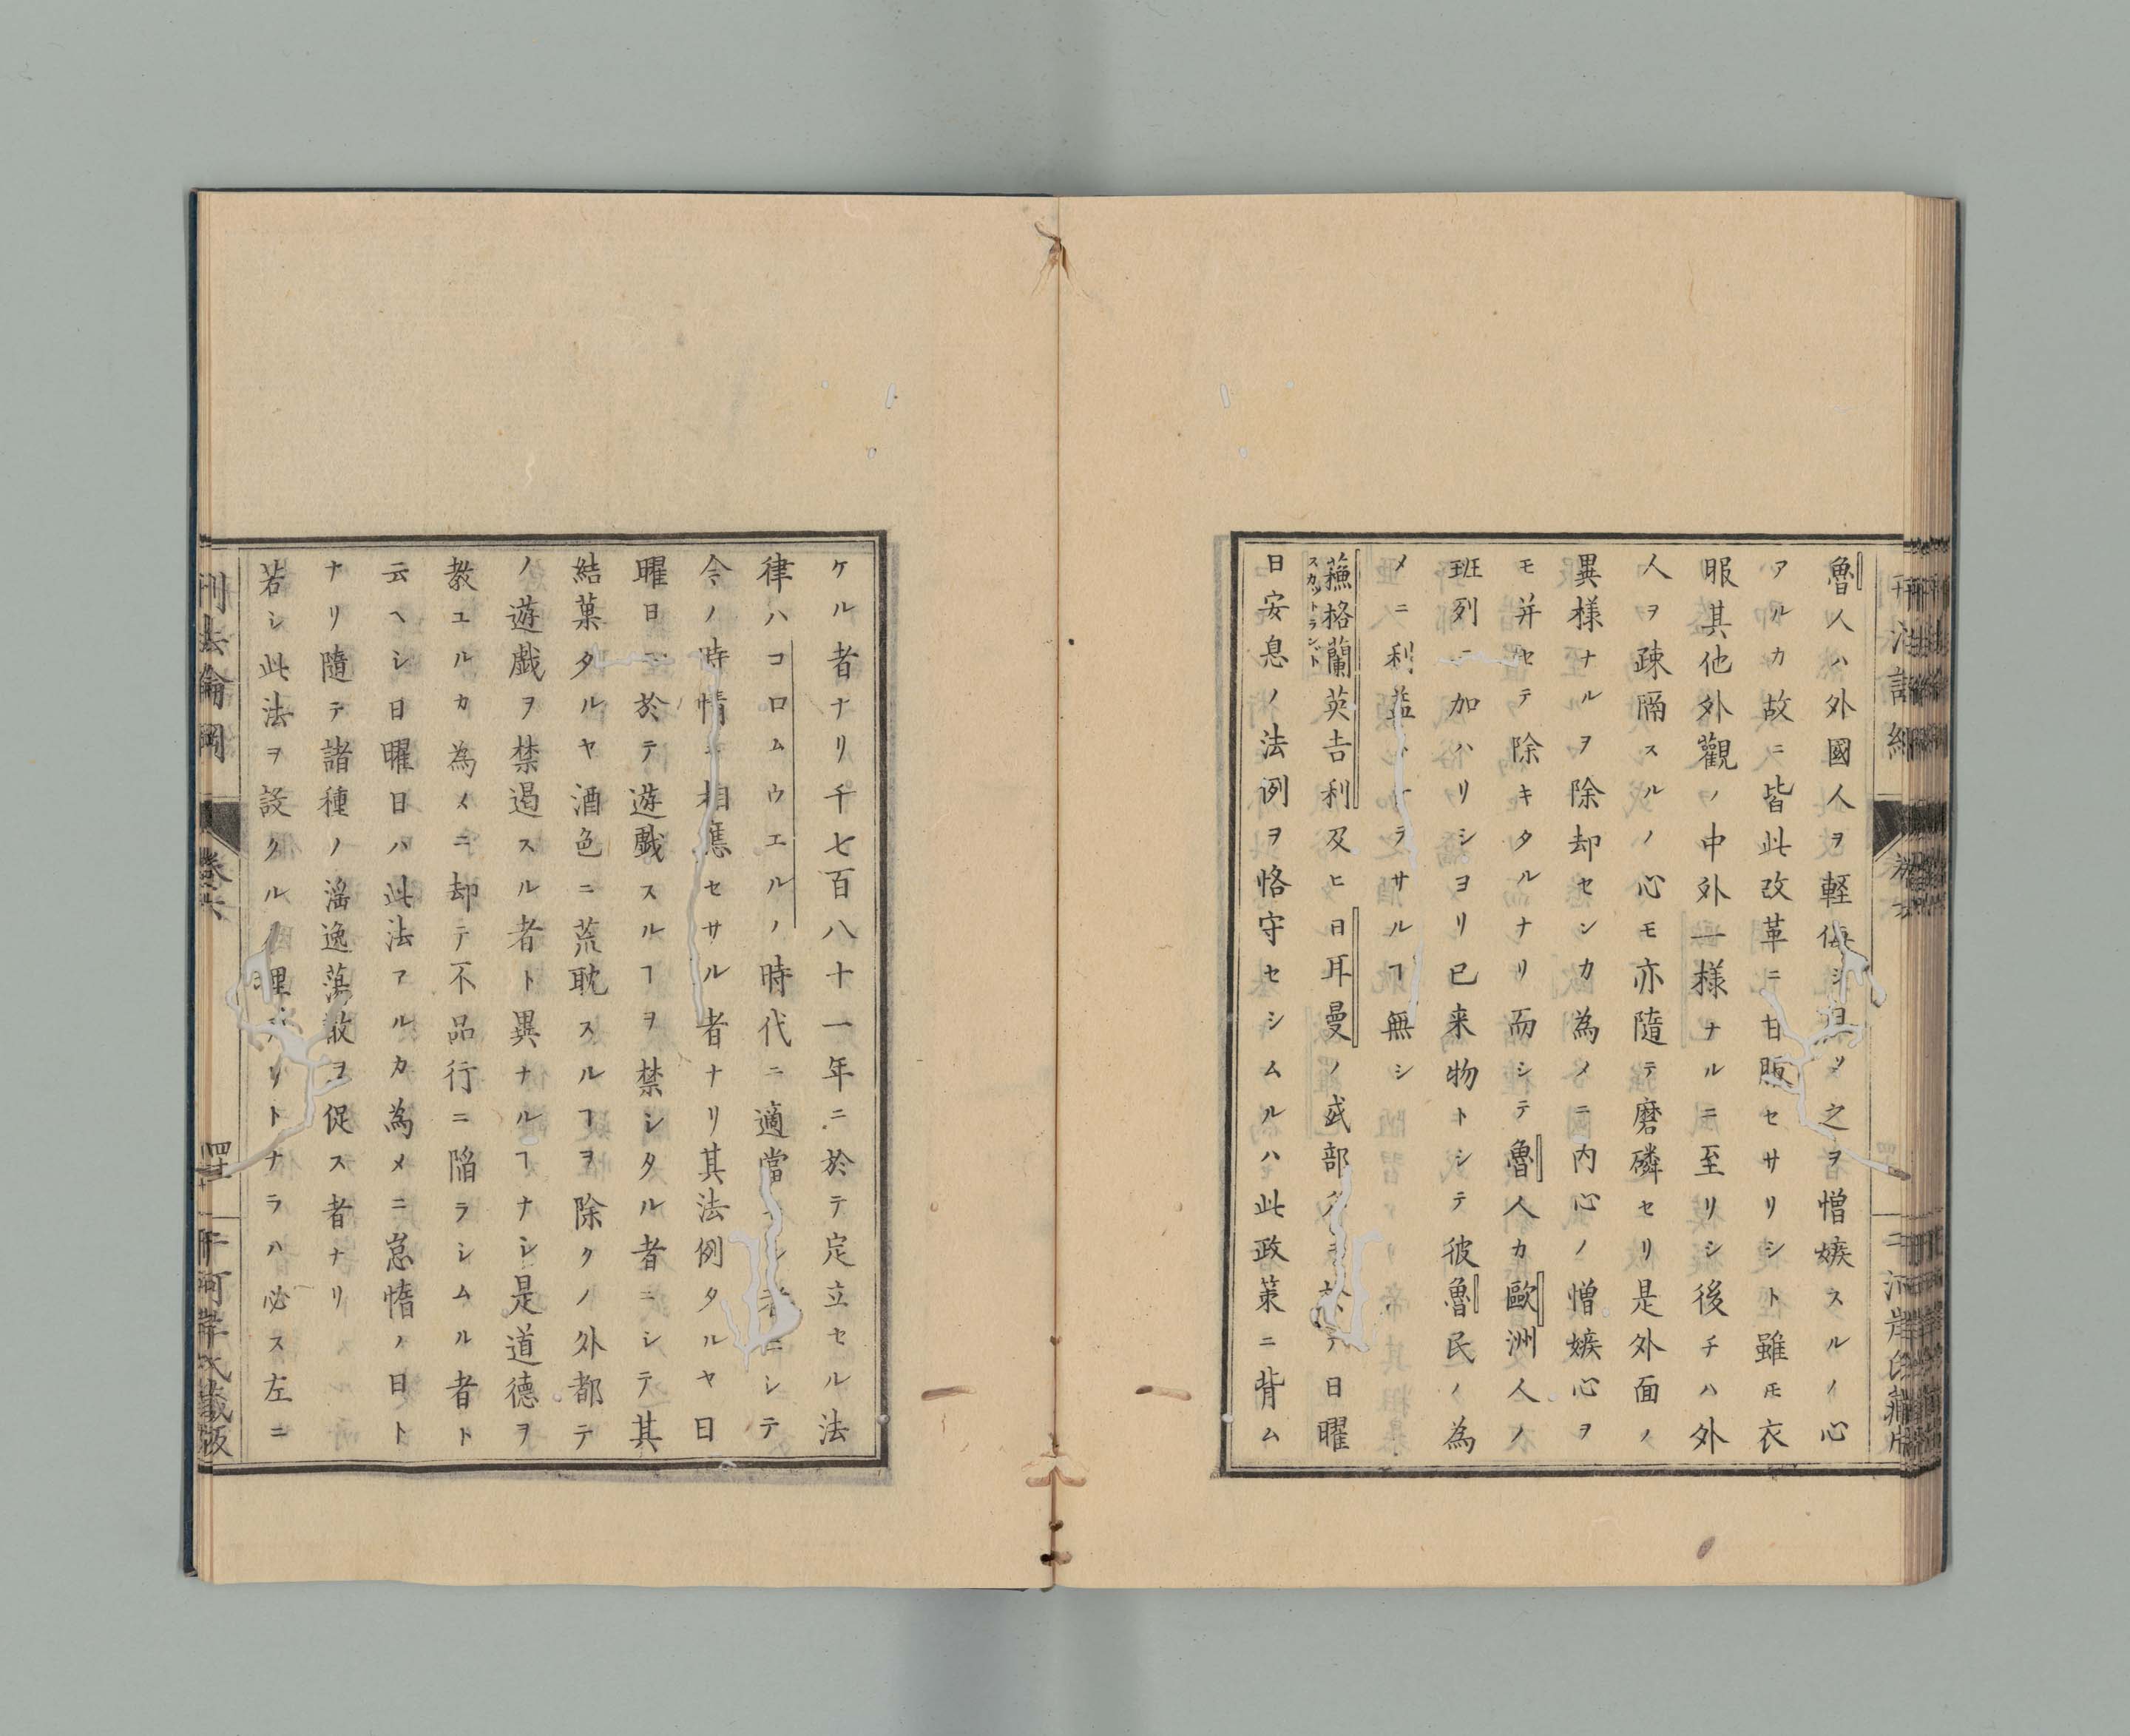 魯人ハ外國人ヲ輕侮シ且ツ之ヲ憎嫉スルノ心
アルカ故ニ皆此改革ニ甘服セサリシト雖モ衣
服其他外觀ノ中外一様ナルニ至リシ後チハ外
人ヲ疎隔スルノ心モ亦隨テ磨磷セリ是外面ノ
異様ナルヲ除却センカ為メニ内心ノ憎嫉心ヲ
モ并セテ除キタルナリ而シテ魯人カ歐洲人ノ
班列ニ加ハリシヨリ已来物トシテ彼魯民ノ為
メニ利益ナラサルヿ無シ
蘓格蘭英吉利及ヒ日耳曼ノ或部分ニ於テ日曜
スカットラント
日安息ノ法例ヲ恪守セシムルハ此政策ニ背ム
ケル者ナリ千七百八十一年ニ於テ定立セル法
律ハコロムウエルノ時代ニ適當セシ者ニシテ
今ノ時情ニ相應セサル者ナリ其法例タルヤ日
曜日ニ於テ遊戯スルヿヲ禁シタル者ニシテ其
結菓タルヤ酒色ニ荒耽スルヿヲ除クノ外都テ
ノ遊戯ヲ禁遏スル者ト異ナルヿナシ是道德ヲ
教エルカ為メニ却テ不品行ニ陥ラシムル者ト
云ヘシ日曜日ハ此法アルカ為メニ怠惰ノ日ト
ナリ隨テ諸種ノ滛逸蕩散ヲ促ス者ナリ
若シ此法ヲ設クルノ理アリトナラハ必ス左ニ
刑法論綱 卷六 四十 二河岸氏藏版